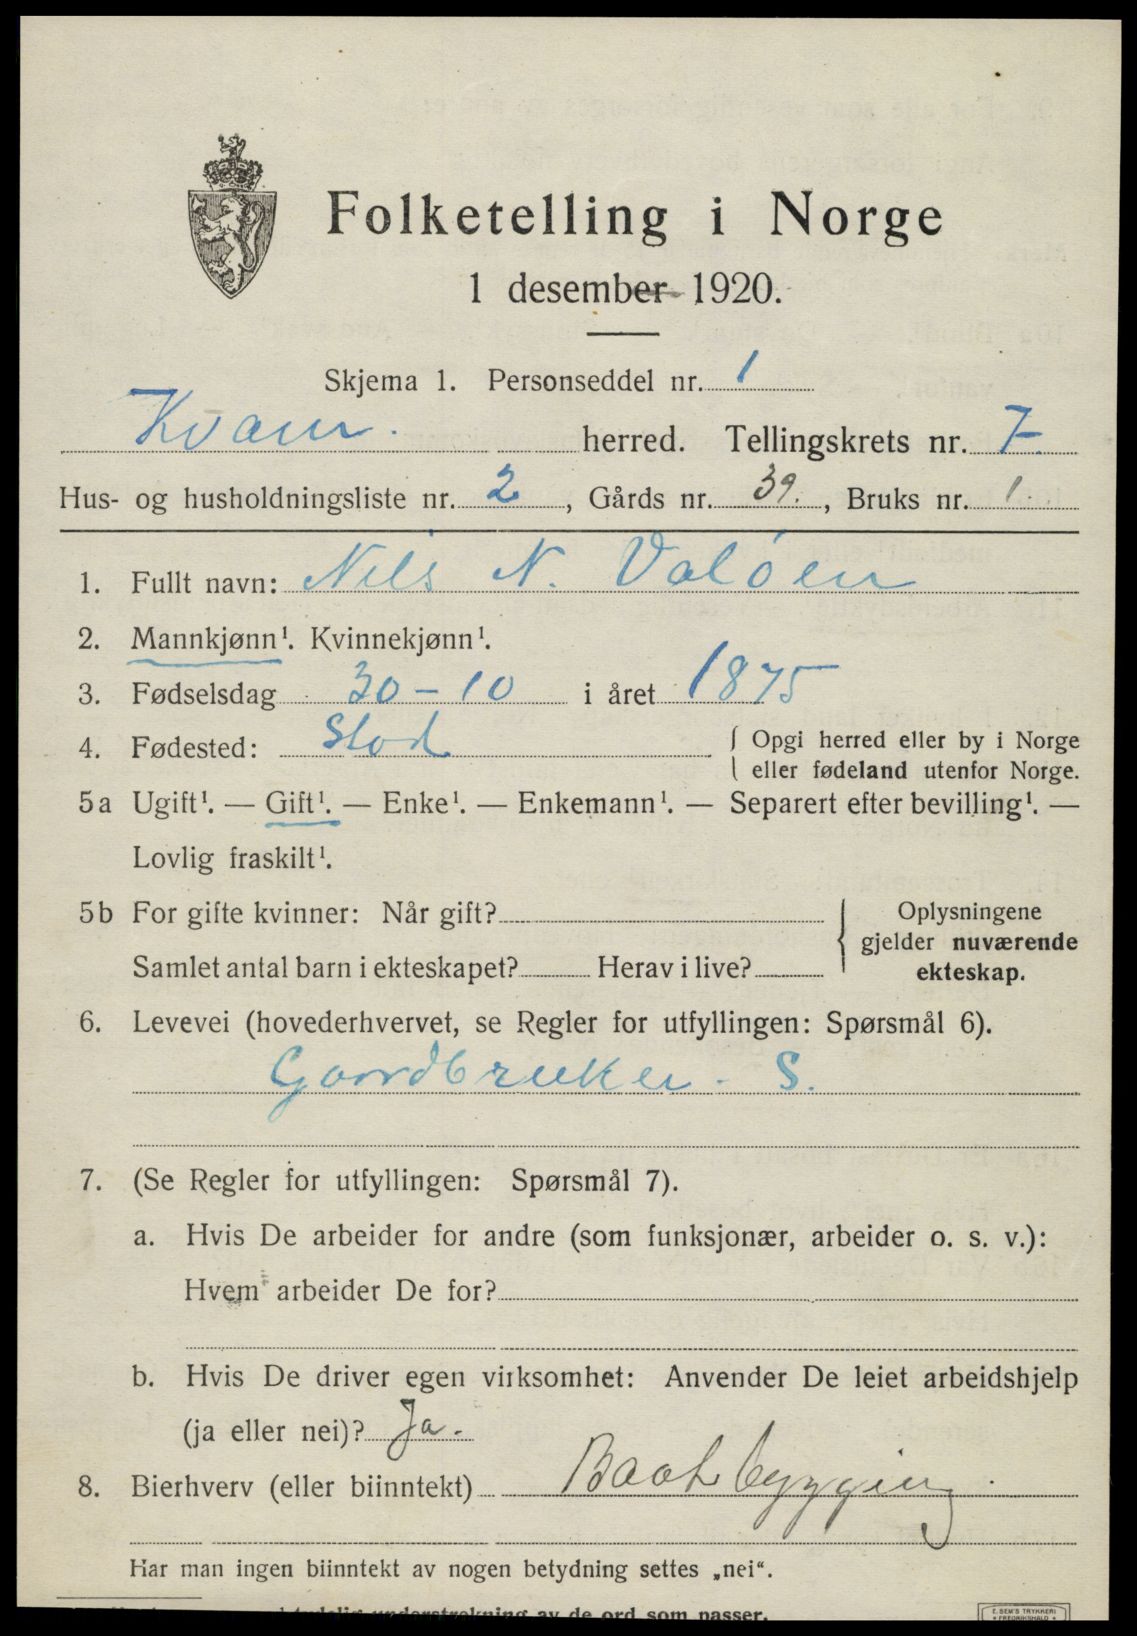 Folketelling i Norge
1 desember 1920.
Skjema 1. Personseddel nr. 1
Kvam. herred. Tellingskrets nr. 7
Hus- og husholdningsliste nr. 2, Gårds nr. 39., Bruks nr. 1
1. Fullt navn: Nils N. Valøen
2. Mannkjønn¹. Kvinnekjønn¹.
3. Fødselsdag 30-10 i året 1875
4. Fødested: Stod { Opgi herred eller by i Norge
eller fødeland utenfor Norge.
5a Ugift¹. — Gift¹. — Enke¹. — Enkemann¹. — Separert efter bevilling¹. —
Lovlig fraskilt¹.
5b For gifte kvinner: Når gift? } Oplysningene
gjelder nuværende
Samlet antal barn i ekteskapet? Herav i live? ekteskap.
6. Levevei (hovederhvervet, se Regler for utfyllingen: Spørsmål 6).
Gaardbruker. S.
7. (Se Regler for utfyllingen: Spørsmål 7).
a. Hvis De arbeider for andre (som funksjonær, arbeider o. s. v.):
Hvem arbeider De for?
b. Hvis De driver egen virksomhet: Anvender De leiet arbeidshjelp
(ja eller nei)? Ja.
8. Bierhverv (eller biinntekt) Baatbygging.
Har man ingen biinntekt av nogen betydning settes „nei“.
understrekning av de ord som passer.
E. SEM'S TRYKKERI
FREDRIKSHALD